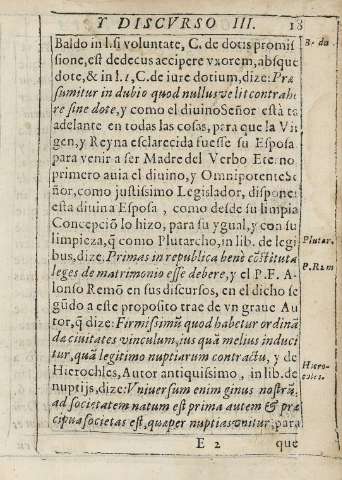 Y DISCVRSO III. 18
Baldo in l. si voluntate, C. de dotis promis
sione, est dedecus accipere vxorem, absque
dote, & in l. 1, C. de iure dotium, dize: Præ
sumitur in dubio quod nullus velit contrahe
re sine dote, y como el diuino Señor està ta
adelante en todas las cosas, para que la Vir
gen, y Reyna esclarecida fuesse su Esposa
para venir a ser Madre del Verbo Eterno
primero auia el diuino, y Omnipotente Se
ñor, como justissimo Legislador, disponer
esta diuina Esposa, como desde su limpia
Concepciõ lo hizo, para su ygual, y con su
limpieza, q̃ como Plutarcho, in lib. de legi
bus, dize: Primas in republica benè cõstituta
leges de matrimonio esse debere, y el P. F. A-
lonso Remõ en sus discursos, en el dicho se
gũdo a este proposito trae de vn graue Au
tor, q̃ dize: Firmissimũ quod habetur ordinã
dæ ciuitates vinculum, ius quã melius induci
tur, quã legitimo nuptiarum contractu, y de
Hierochles, Autor antiquissimo, in lib. de
nuptijs, dize: Vniuersum enim ginus nostrũ,
ad societatem natum est prima autem & præ
cipua societas est, quæ per nuptias vnitur, para
E 2 que
B. do
Plutar.
P. Rem
Hiero-
cles.